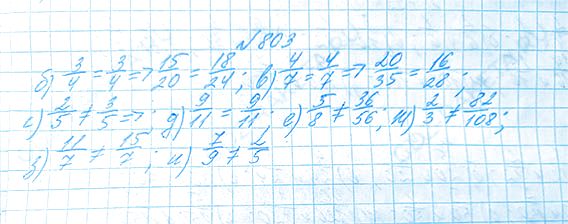 №803
б) 3/4 = 3/4 => 15/20 = 18/24; в) 4/7 = 4/7 => 20/35 = 16/28;
г) 2/5 ≠ 3/5 =>; д) 9/11 = 9/11; е) 5/8 ≠ 36/56; ж) 2/3 ≠ 82/108;
з) 11/7 ≠ 15/7; и) 7/9 ≠ 2/5